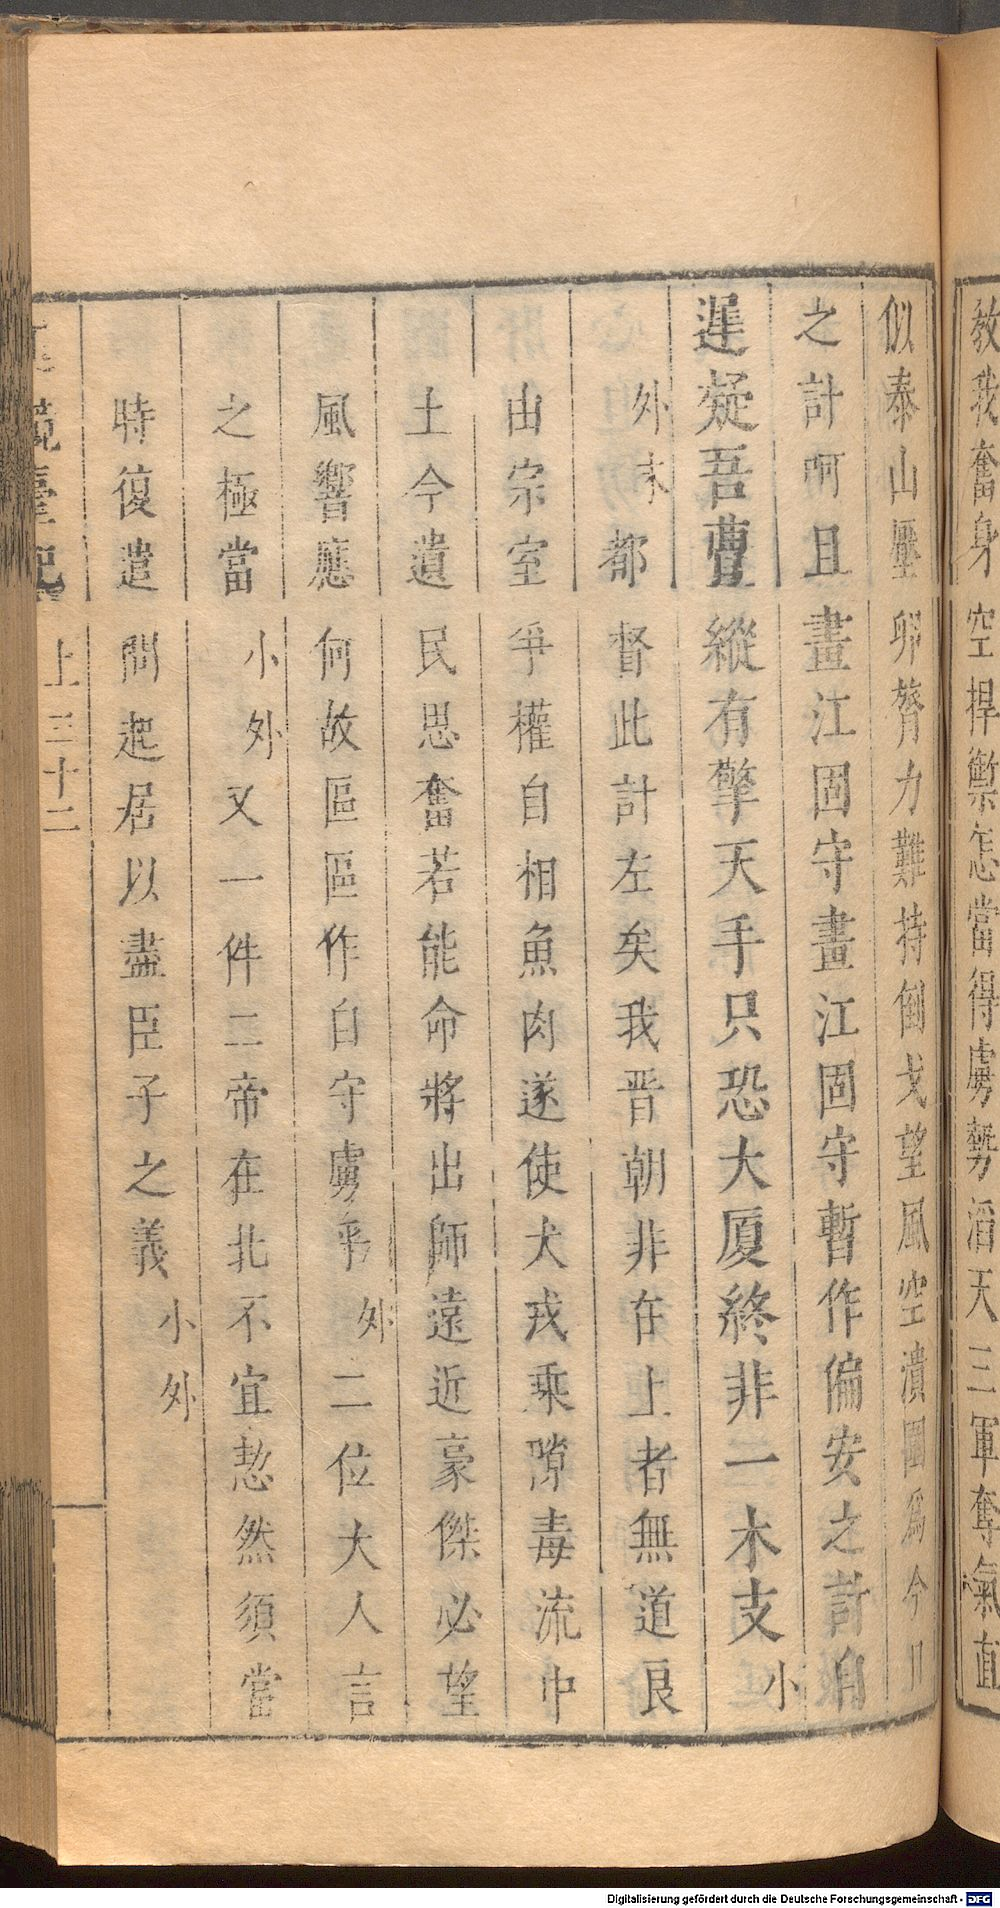 教我奮身空捍禦怎當得虜勢滔天三軍奪氣直
似泰山壓卵膂力難持倒戈望風空潰圖爲今日
之計啊且畫江固守畫江固守暫作偏安之計自
遲疑吾曹縱有擎天手只恐大厦終非一木支小
外末都督此計左矣我晋朝非在上者無道艮
由宗室爭權自相魚肉遂使犬戎乘隙毒流中
土今遺民思奮若能命將出師遠近豪傑必望
風響應何故區區作自守虜乎外二位大人言
之極當小外又一件二帝在北不宜恝然須當
時復遣問起居以盡臣子之義小外
上三十二
Digitalisierung gefördert durch die Deutsche Forschungsgemeinschaft - DFG